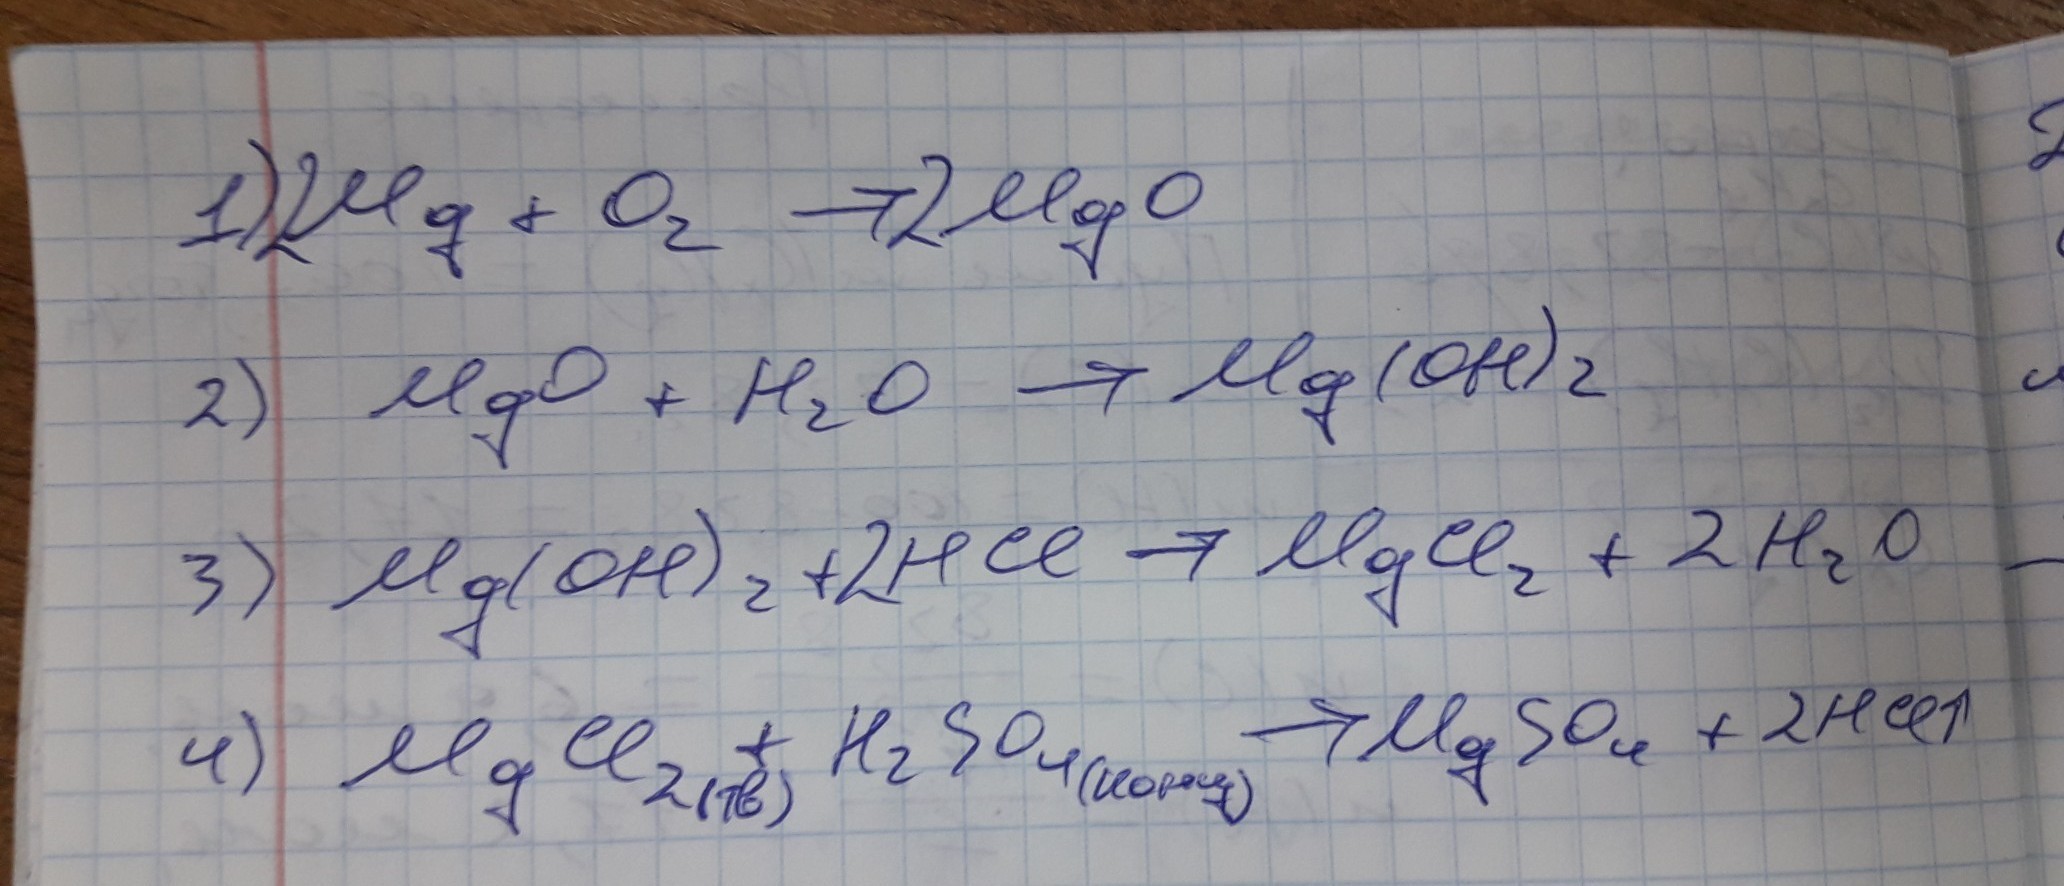 1) 2Mg + O₂ → 2MgO
2) MgO + H₂O → Mg(OH)₂
3) Mg(OH)₂ + 2HCl → MgCl₂ + 2H₂O
4) MgCl₂(тв) + H₂SO₄(конц) → MgSO₄ + 2HCl↑